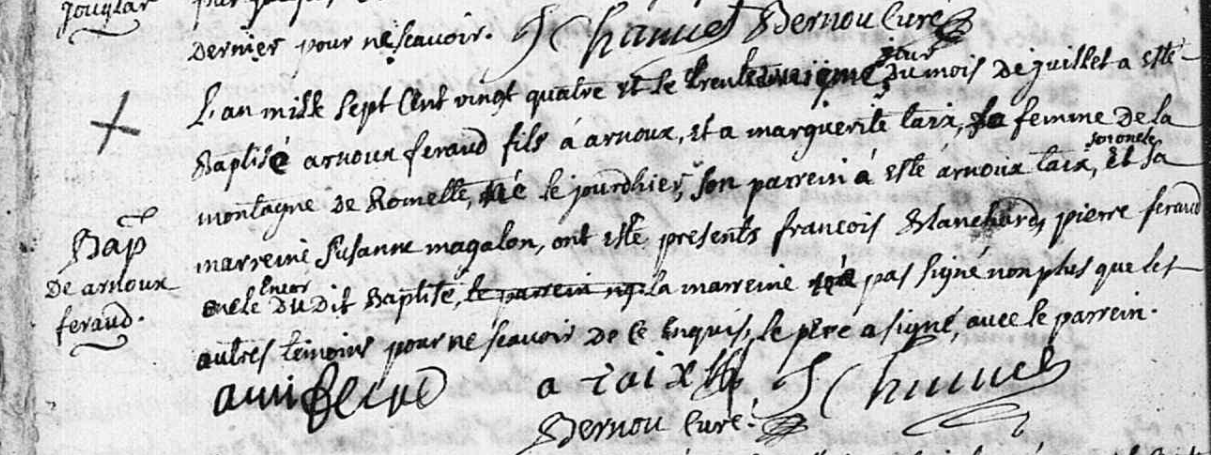 jouglar
dernier pour ne scavoir. J Chamet Bernou Curé
L'an mille sept Cent vingt quatre et le trente jour du mois de juillet a esté
Baptisé arnoux feraud fils á arnoux, et a marguerite taix, femme de la
montagne de Romette, né le jourdhier, son parrein á esté arnoux taix, son oncle et sa
marreine Susanne magalon, ont esté présents françois Blanchard, pierre feraud
oncle encor du dit Baptisé, le parrein la marreine pas signé non plus que les
autres temoins pour ne scavoir de ce Enquis, le père a signé, avec le parrein.
Bap
De arnoux
feraud.
a taix J Chamet
Bernou Curé.